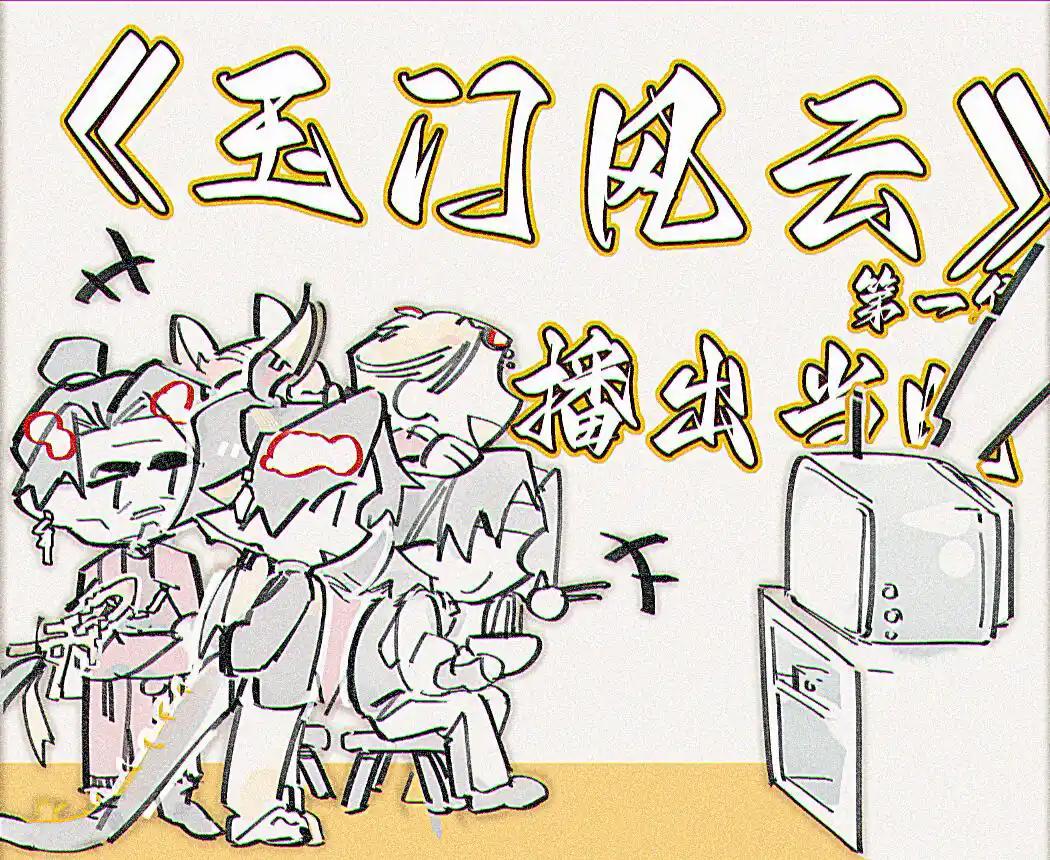 《玉门风云》
第一
播出当